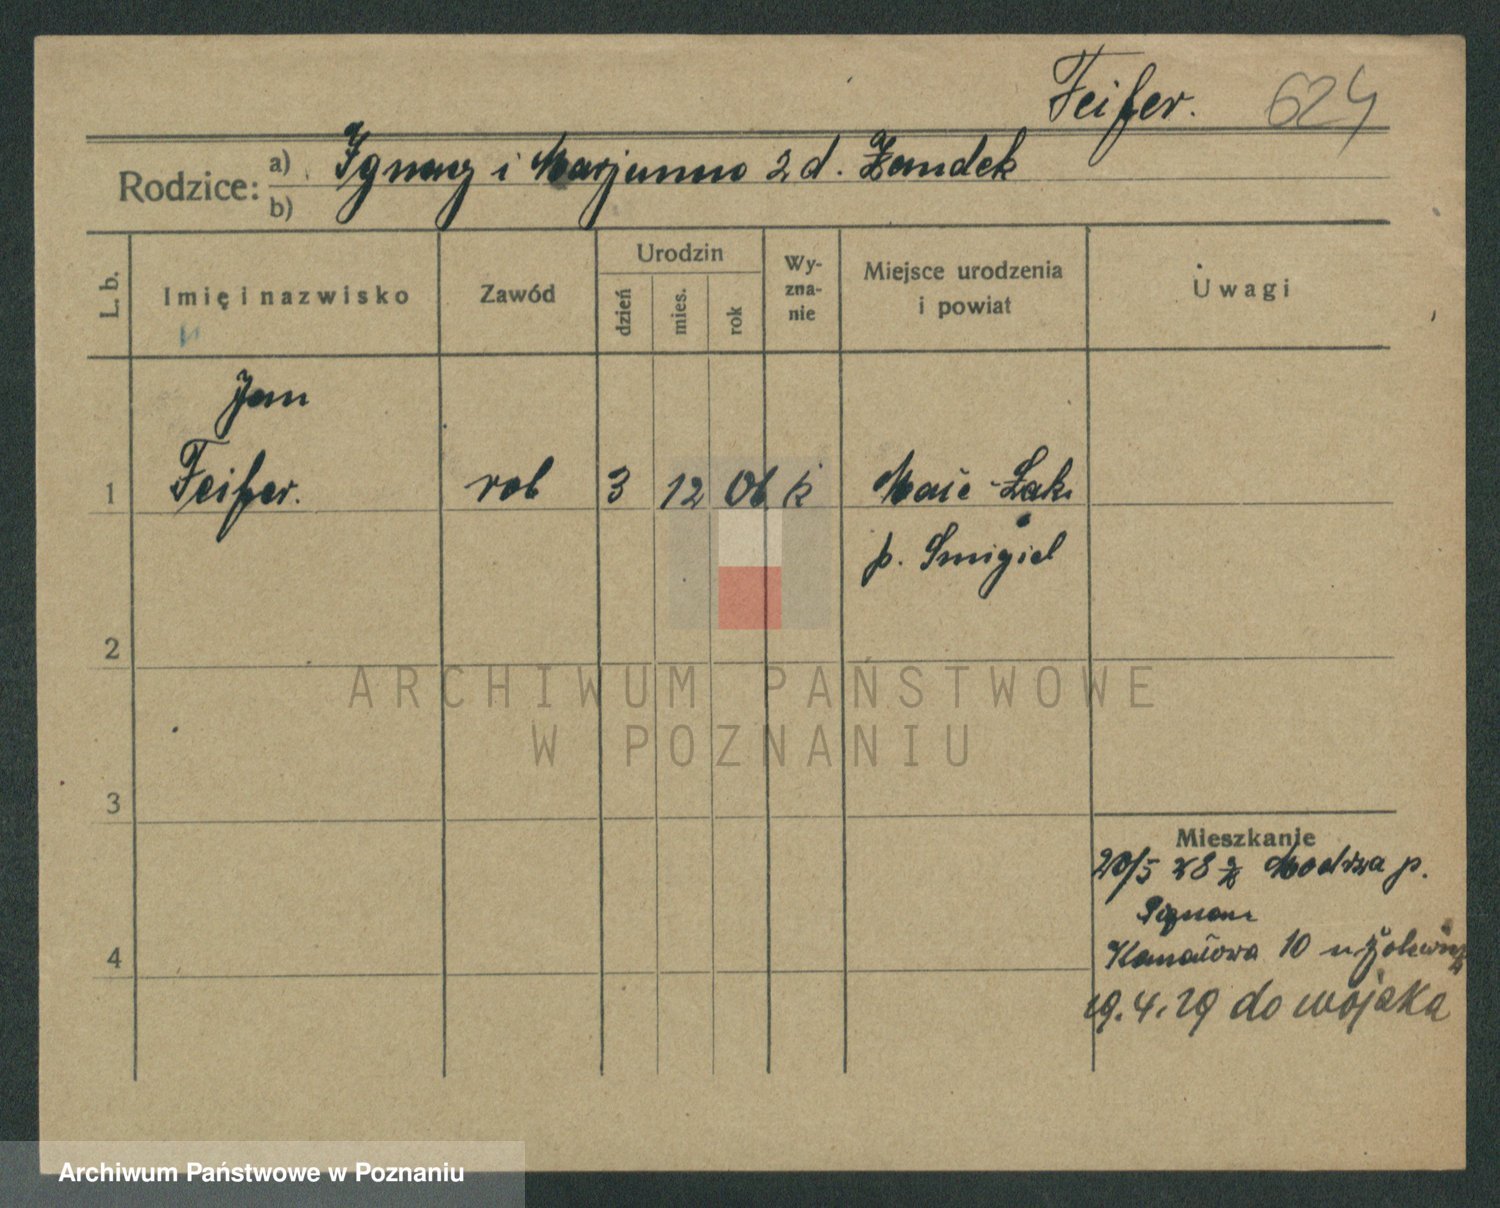 Feifer. 624
Rodzice: a) Ignacy i Marjanna z d. Żandek
b)
L. b.
Imię i nazwisko
Zawód
Urodzin
dzień
mies.
rok
Wy-
zna-
nie
Miejsce urodzenia
i powiat
Uwagi
Jan
1 Feifer. rob 3 12 06 k
p. Smigiel
2
ARCHIWUM PAŃSTWOWE
W POZNANIU
3
Mieszkanie
20/5 28 z p.
4
Kanałowa 10 u
19.4.29 do wojska
Archiwum Państwowe w Poznaniu